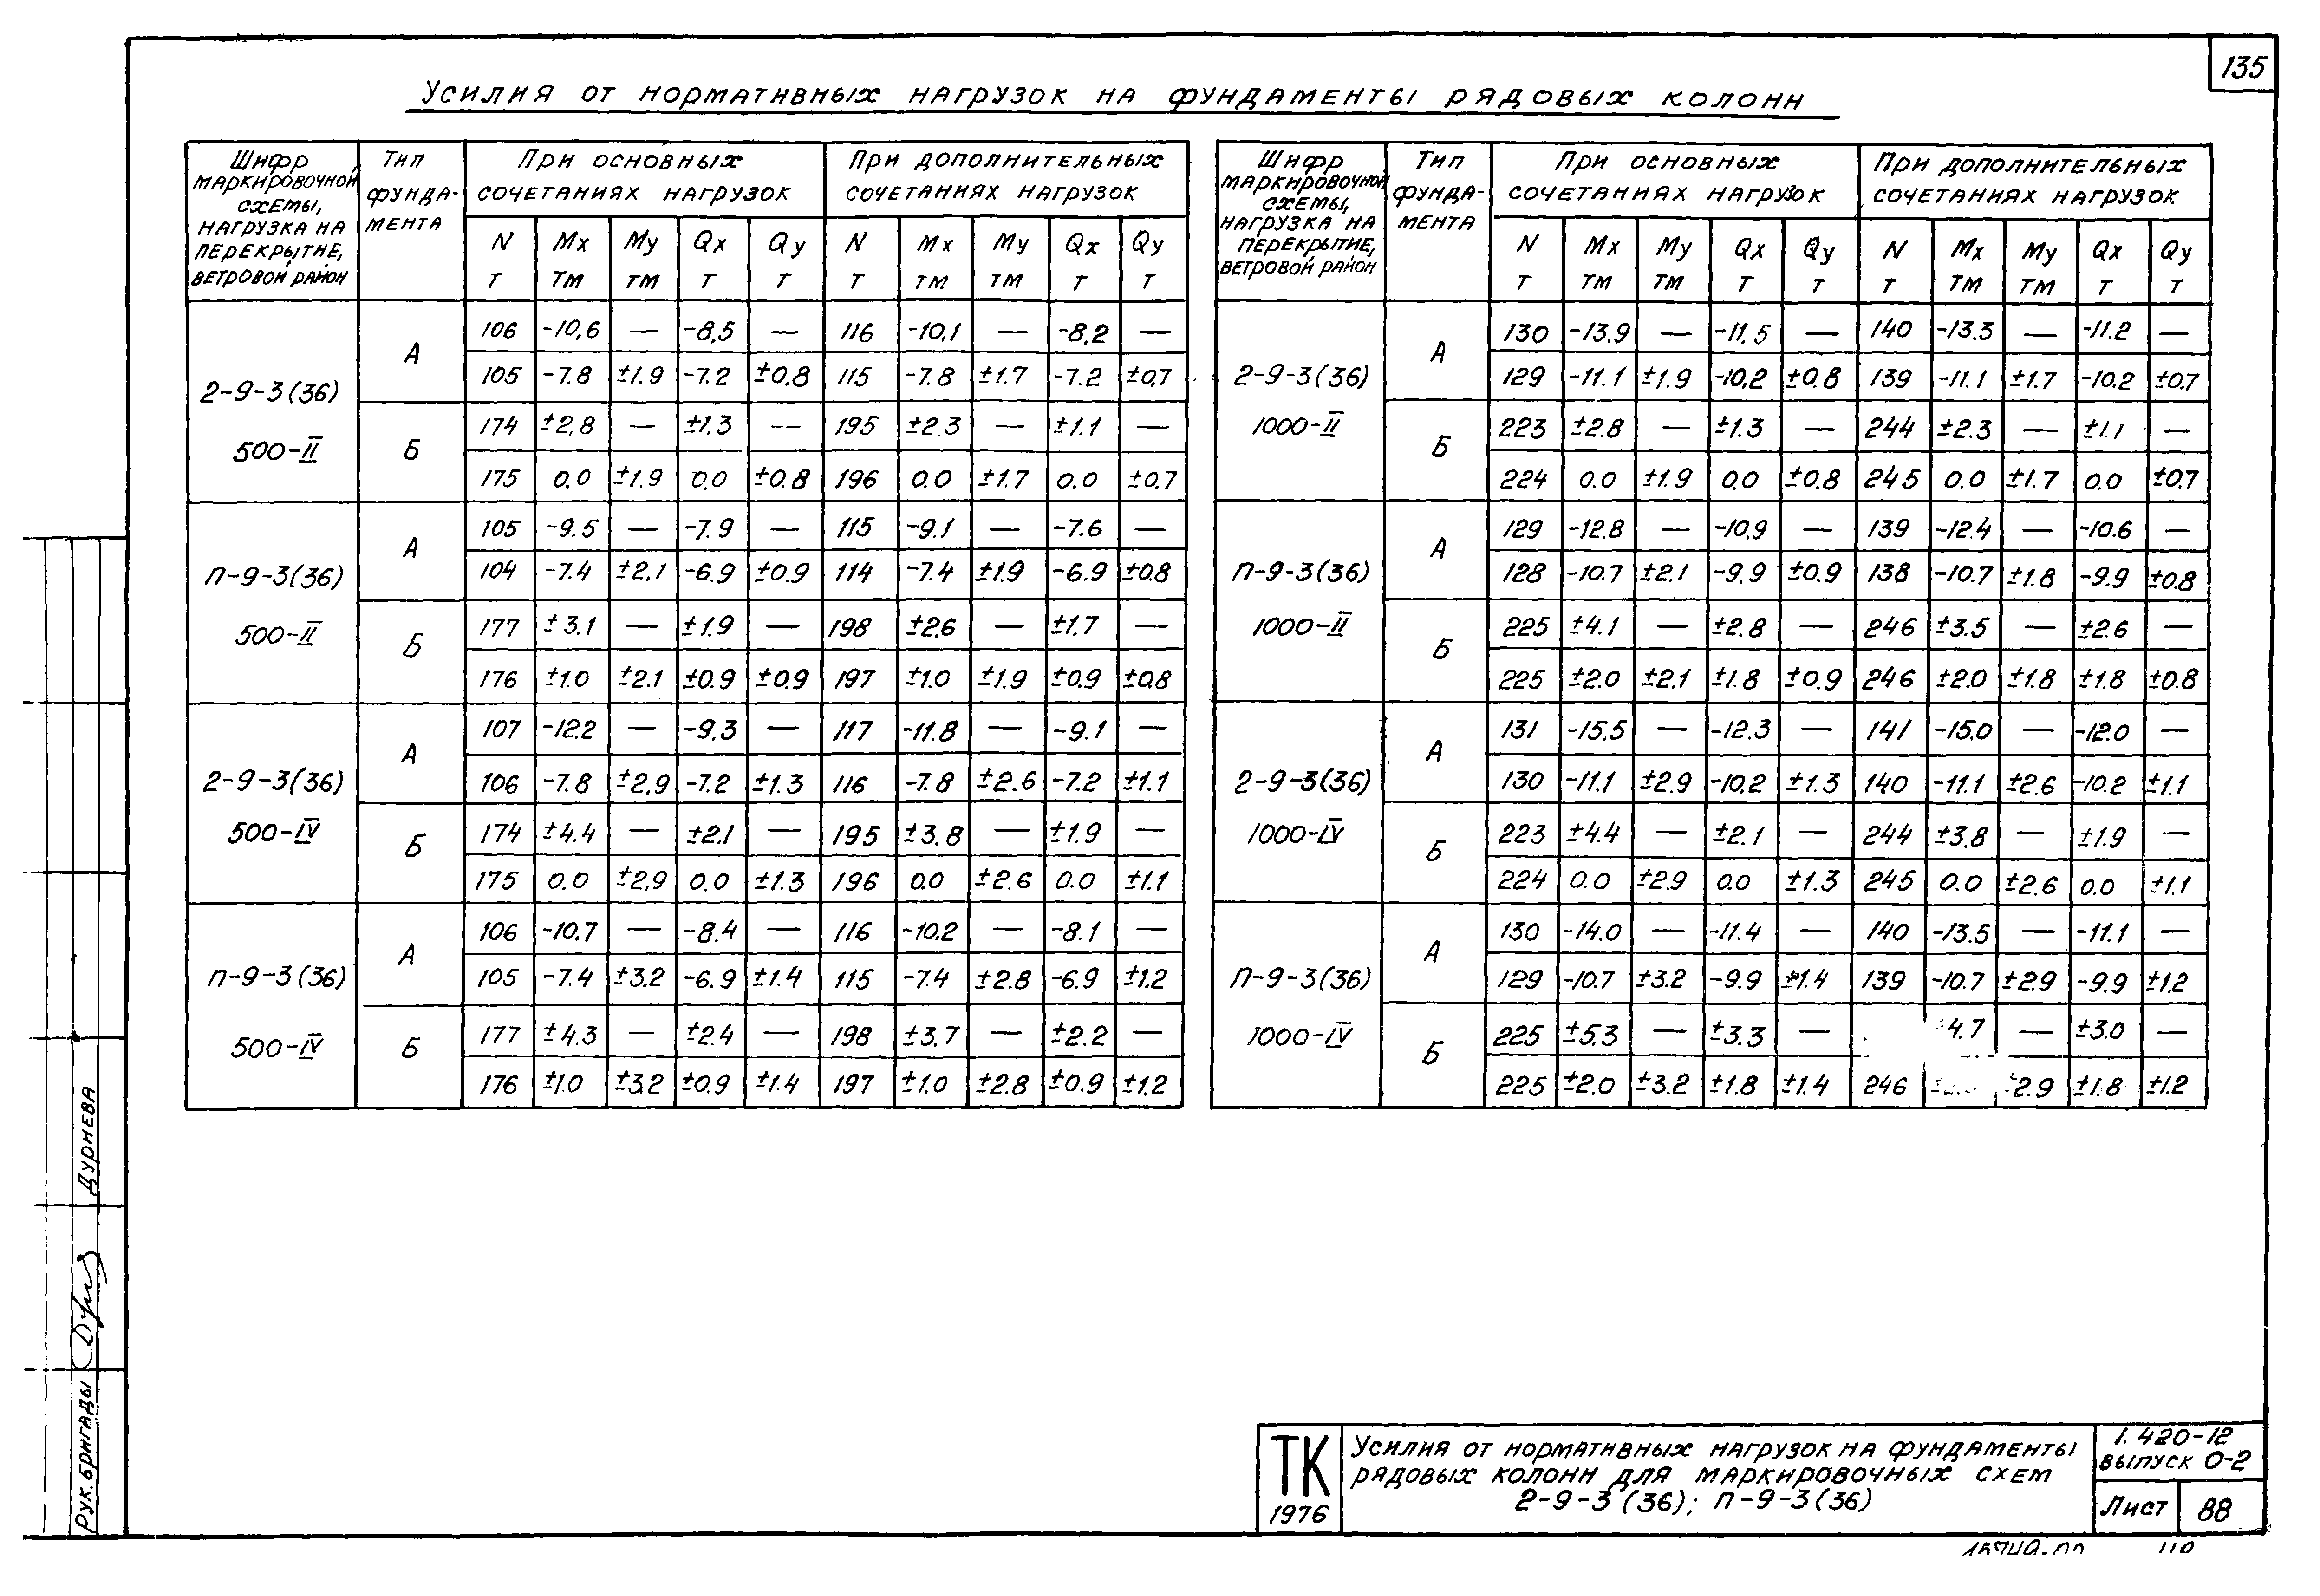 135
Усилия от нормативных нагрузок на фундаменты рядовых колонн
Шифр маркировочной схемы, нагрузка на перекрытие, ветровой район | Тип фунда-мента | При основных сочетаниях нагрузок | При дополнительных сочетаниях нагрузок
N т | Mx тм | My тм | Qx т | Qy т | N т | Mx тм | My тм | Qx т | Qy т
2-9-3(36) 500-II
А
106 -10,6 — -8,5 — 116 -10,1 — -8,2 —
105 -7.8 ±1.9 -7.2 ±0.8 115 -7.8 ±1.7 -7.2 ±0,7
Б
174 ±2,8 — ±1.3 -- 195 ±2.3 — ±1.1 —
175 0.0 ±1.9 0.0 ±0.8 196 0.0 ±1.7 0.0 ±0.7
П-9-3(36) 500-II
А
105 -9.5 — -7.9 — 115 -9.1 — -7.6 —
104 -7.4 ±2.1 -6.9 ±0.9 114 -7.4 ±1.9 -6.9 ±0.8
Б
177 ±3.1 — ±1.9 — 198 ±2.6 — ±1.7 —
176 ±1.0 ±2.1 ±0.9 ±0.9 197 ±1.0 ±1.9 ±0.9 ±0.8
2-9-3(36) 500-IV
А
107 -12.2 — -9.3 — 117 -11.8 — -9.1 —
106 -7.8 ±2.9 -7.2 ±1.3 116 -7.8 ±2.6 -7.2 ±1.1
Б
174 ±4.4 — ±2.1 — 195 ±3.8 — ±1.9 —
175 0.0 ±2.9 0.0 ±1.3 196 0.0 ±2.6 0.0 ±1.1
П-9-3(36) 500-IV
А
106 -10.7 — -8.4 — 116 -10.2 — -8.1 —
105 -7.4 ±3.2 -6.9 ±1.4 115 -7.4 ±2.8 -6.9 ±1.2
Б
177 ±4.3 — ±2.4 — 198 ±3.7 — ±2.2 —
176 ±1.0 ±3.2 ±0.9 ±1.4 197 ±1.0 ±2.8 ±0.9 ±1.2
Шифр маркировочной схемы, нагрузка на перекрытие, ветровой район | Тип фунда-мента | При основных сочетаниях нагрузок | При дополнительных сочетаниях нагрузок
N т | Mx тм | My тм | Qx т | Qy т | N т | Mx тм | My тм | Qx т | Qy т
2-9-3(36) 1000-II
А
130 -13.9 — -11.5 — 140 -13.3 — -11.2 —
129 -11.1 ±1.9 -10.2 ±0.8 139 -11.1 ±1.7 -10.2 ±0.7
Б
223 ±2.8 — ±1.3 — 244 ±2.3 — ±1.1 —
224 0.0 ±1.9 0.0 ±0.8 245 0.0 ±1.7 0.0 ±0.7
П-9-3(36) 1000-II
А
129 -12.8 — -10.9 — 139 -12.4 — -10.6 —
128 -10.7 ±2.1 -9.9 ±0.9 138 -10.7 ±1.8 -9.9 ±0.8
Б
225 ±4.1 — ±2.8 — 246 ±3.5 — ±2.6 —
225 ±2.0 ±2.1 ±1.8 ±0.9 246 ±2.0 ±1.8 ±1.8 ±0.8
2-9-3(36) 1000-IV
А
131 -15.5 — -12.3 — 141 -15.0 — -12.0 —
130 -11.1 ±2.9 -10.2 ±1.3 140 -11.1 ±2.6 -10.2 ±1.1
Б
223 ±4.4 — ±2.1 — 244 ±3.8 — ±1.9 —
224 0.0 ±2.9 0.0 ±1.3 245 0.0 ±2.6 0.0 ±1.1
П-9-3(36) 1000-IV
А
130 -14.0 — -11.4 — 140 -13.5 — -11.1 —
129 -10.7 ±3.2 -9.9 ±1.4 139 -10.7 ±2.9 -9.9 ±1.2
Б
225 ±5.3 — ±3.3 — 4.7 — ±3.0 —
225 ±2.0 ±3.2 ±1.8 ±1.4 246 2.9 ±1.8 ±1.2
Рук. бригады Дурнева
ТК 1976
Усилия от нормативных нагрузок на фундаменты
рядовых колонн для маркировочных схем
2-9-3(36); П-9-3(36)
1.420-12
выпуск 0-2
Лист 88